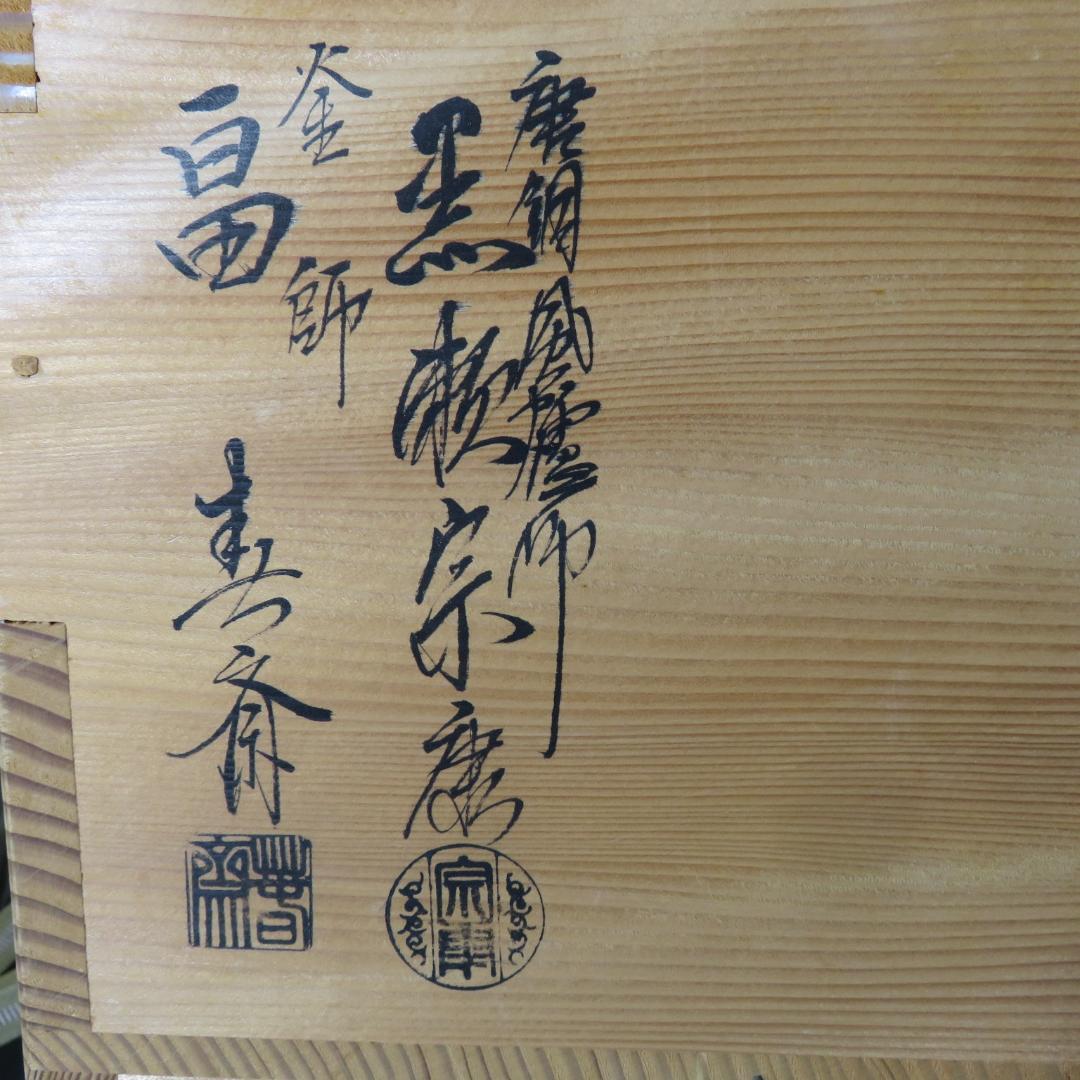 唐銅風爐師
黒瀬宗康
宗康
釜師
畠春斎
春齋